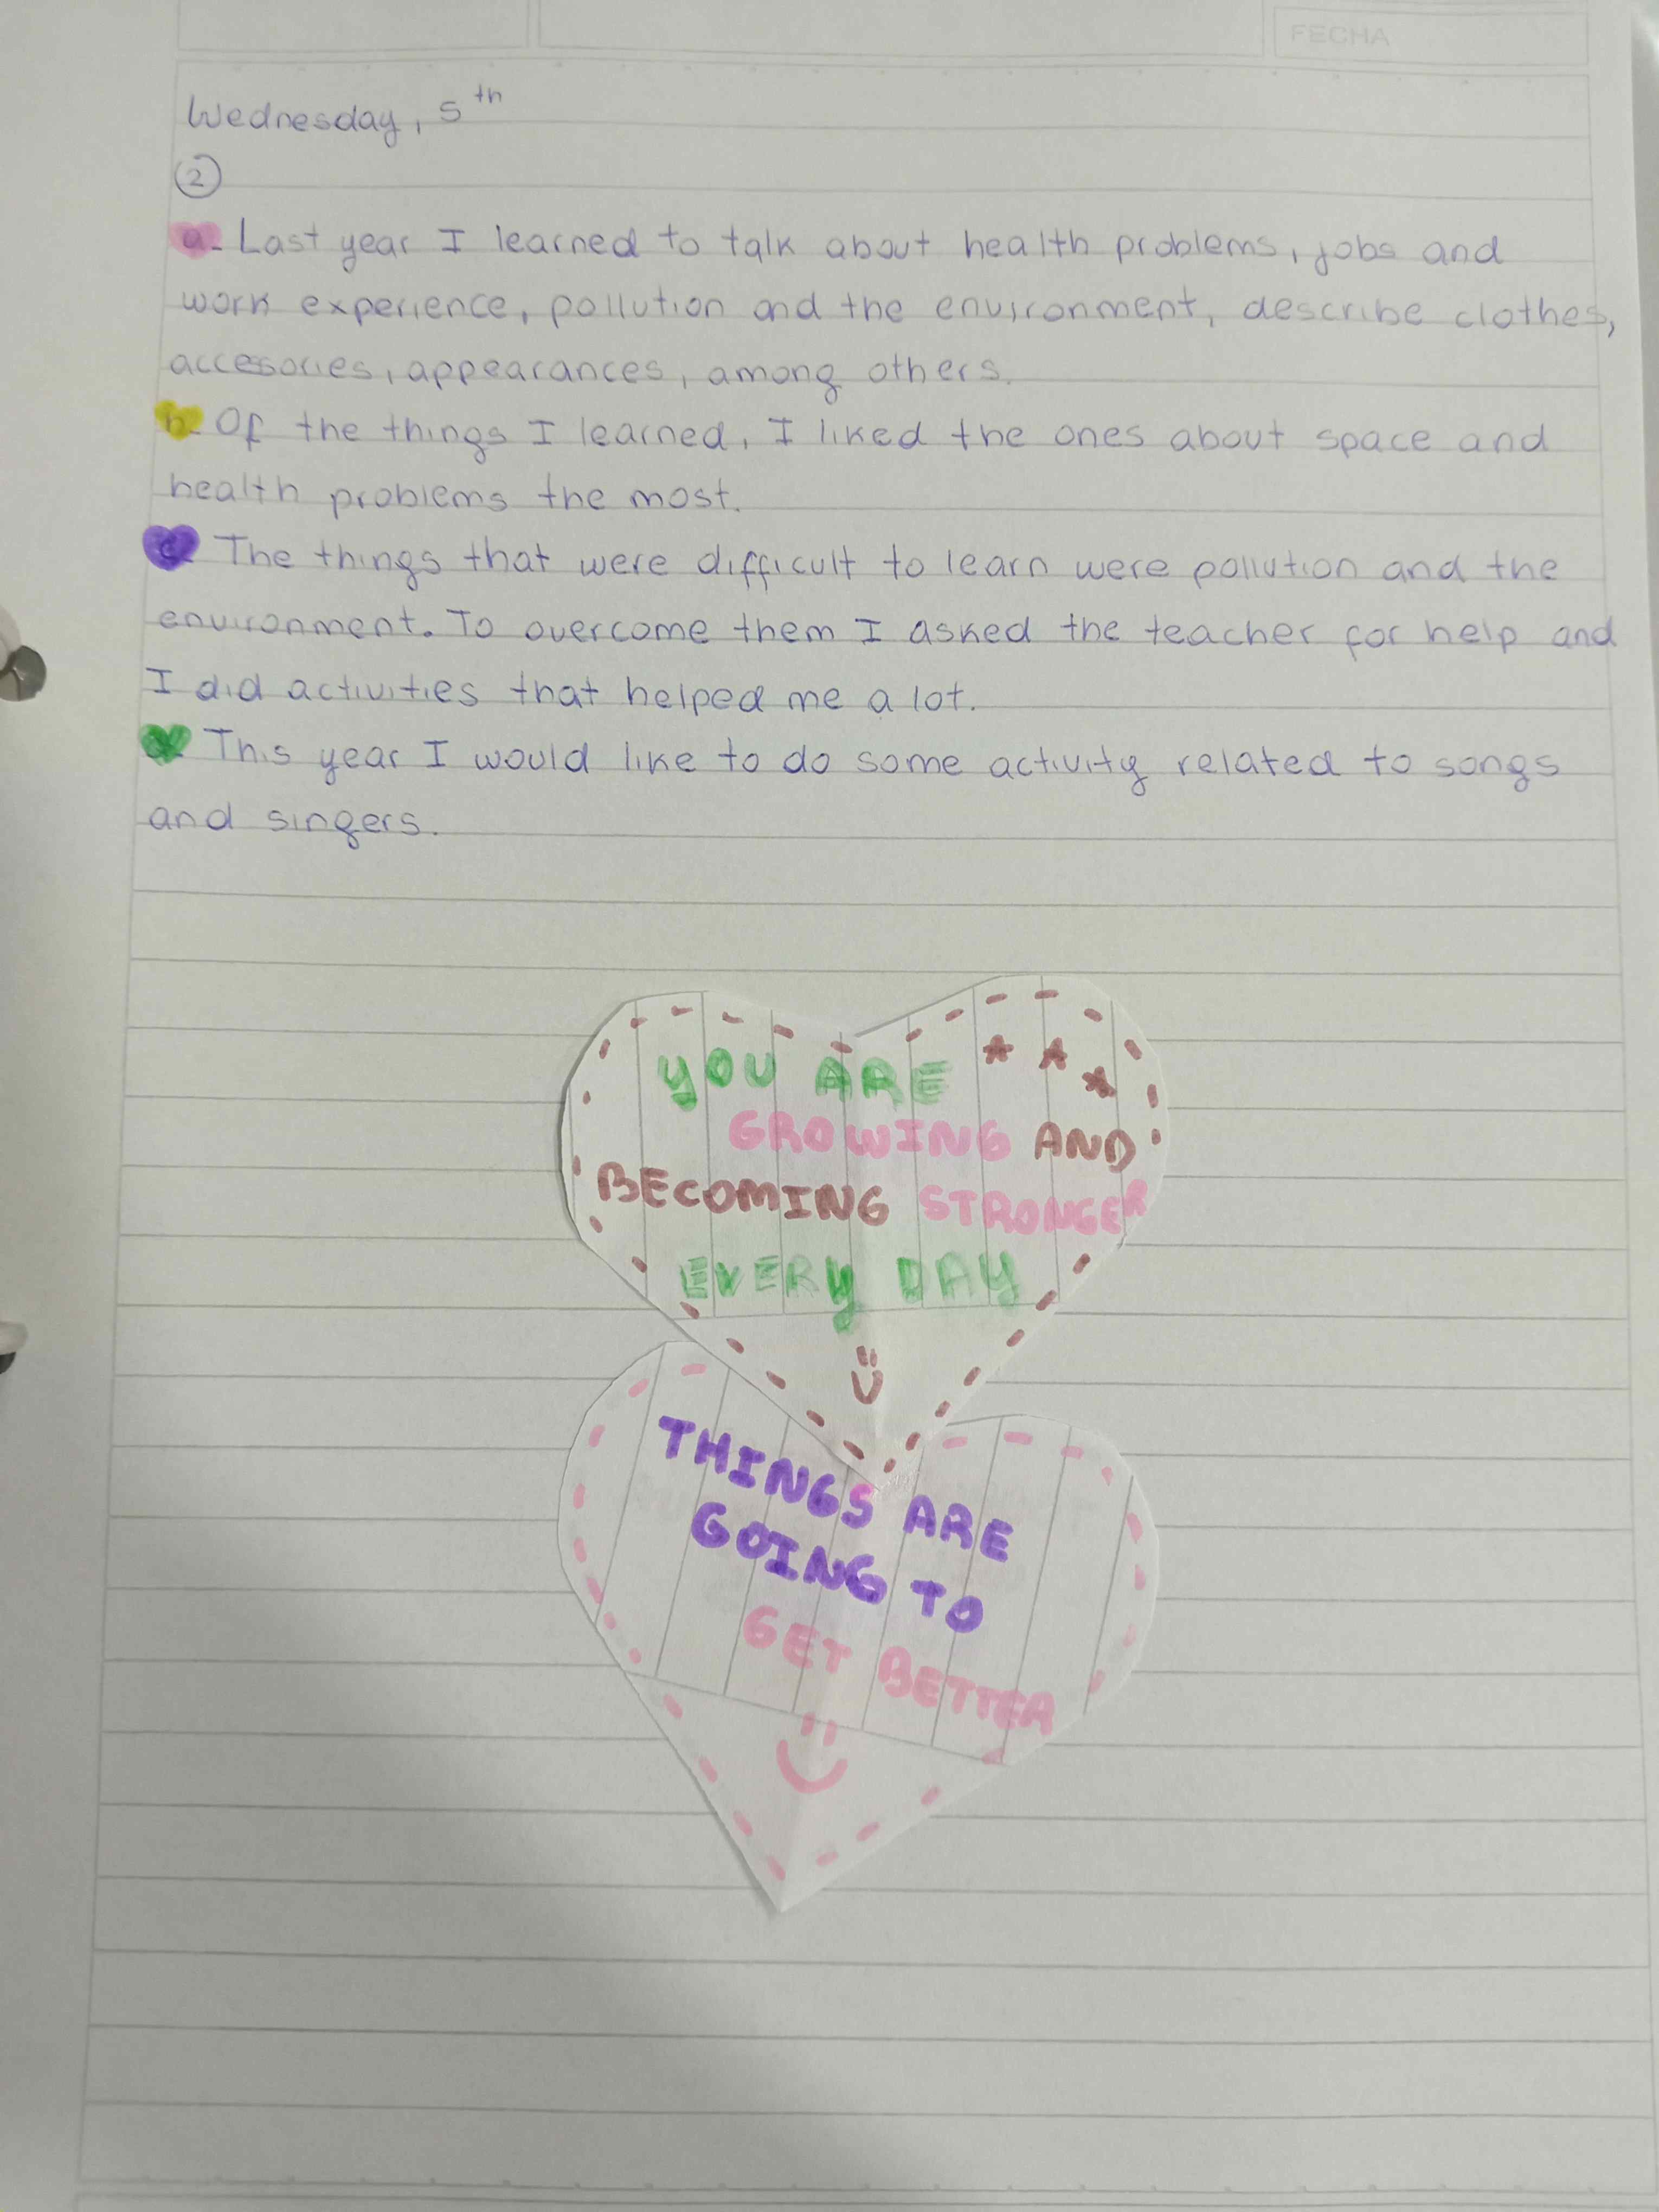 FECHA
Wednesday, 5th
2
a- Last year I learned to talk about health problems, jobs and
work experience, pollution and the environment, describe clothes,
accesories, appearances, among others.
b- Of the things I learned, I liked the ones about space and
health problems the most.
c- The things that were difficult to learn were pollution and the
environment. To overcome them I asked the teacher for help and
I did activities that helped me a lot.
d- This year I would like to do some activity related to songs
and singers.
YOU ARE
GROWING AND
BECOMING STRONGER
EVERY DAY
THINGS ARE
GOING TO
GET BETTER